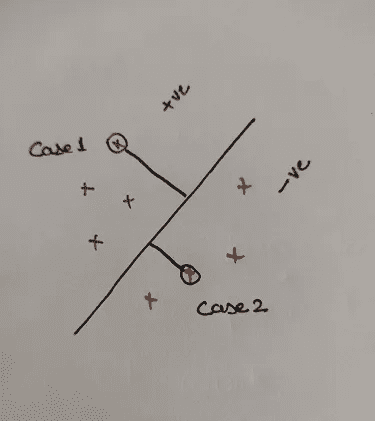 +ve
Case 1
-ve
Case 2